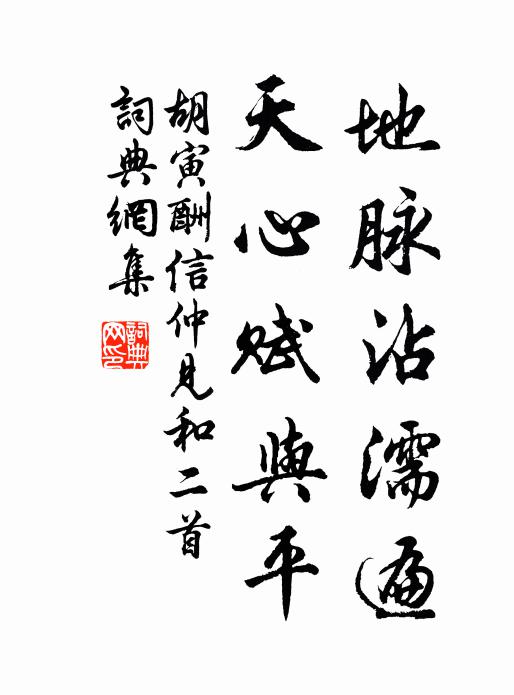 地脉沾濡遍
天心赋與平
胡寅酬信仲見和二首
詞典網集
詞典網印